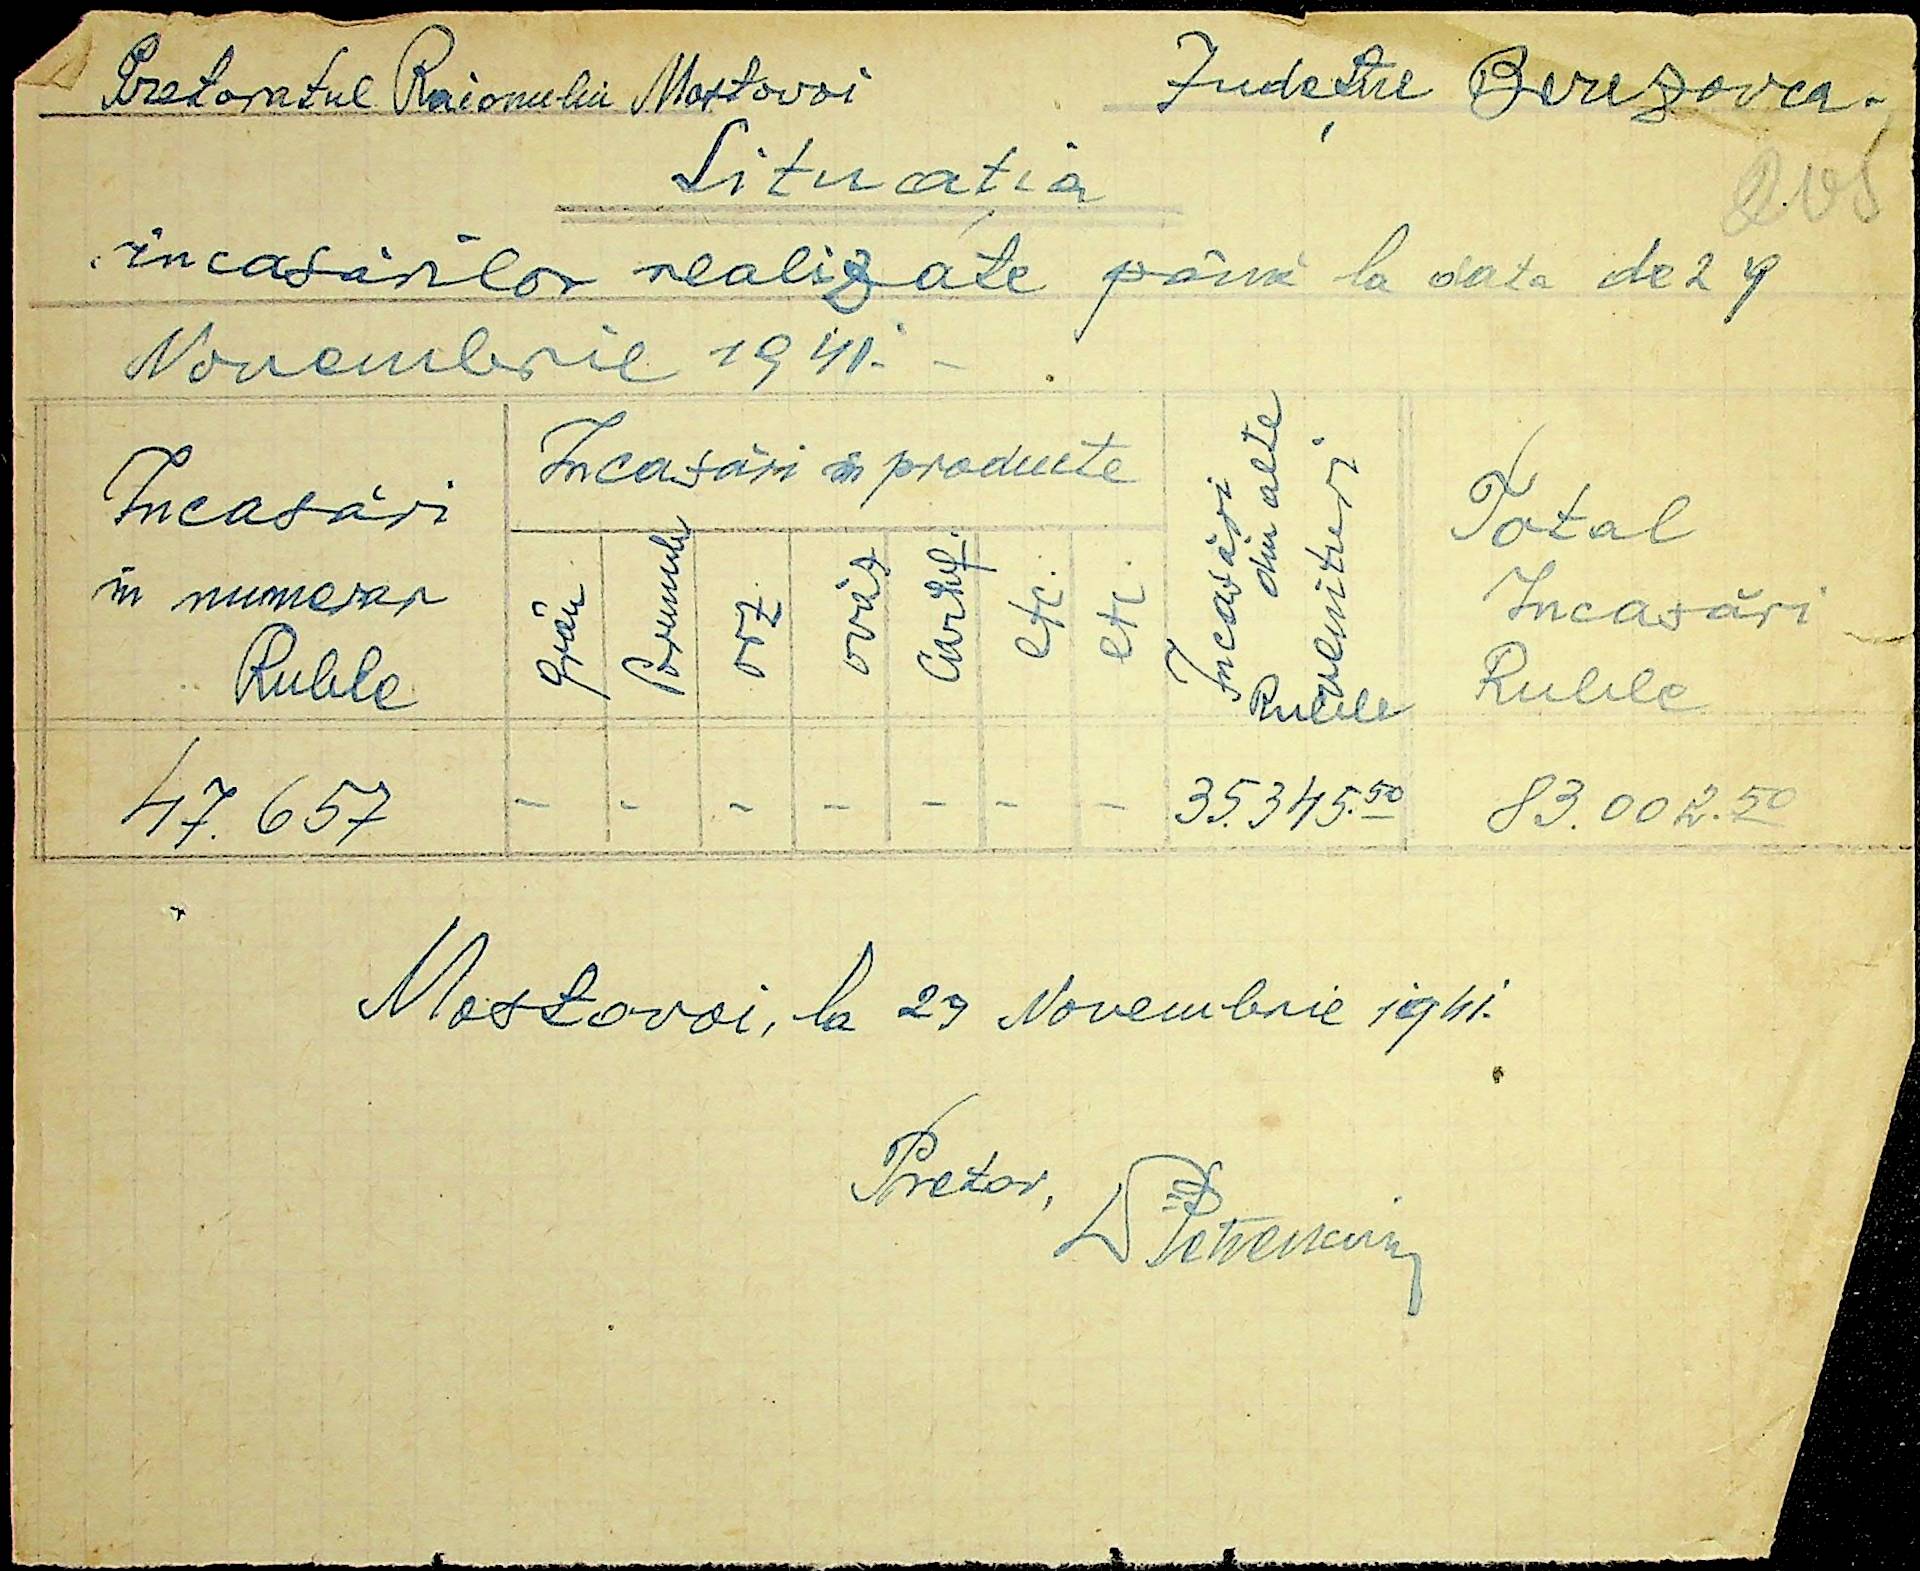 Pretoratul Raionului Mostovoi
Județul Berezovca.
205
Situația
încasărilor realizate până la data de 29
Novembrie 1941. -
Încasări
în numerar
Ruble
Încasări în producte
grâu
Porumb
orz
ovăz
Cartf.
etc.
etc.
Încasări
din alte
venituri
Ruble
Total
Incasări
Ruble
47.657 - - - - - - - 35.345.50 83.002.50
Mostovoi, la 29 Novembrie 1941.
Pretor,